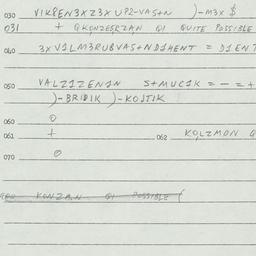 030 VIKPEN3XZ3XUP2-VAS+N )-M3X $
031 + GKONZESRZAN QI QUITE POSSIBLE
040 3XV1LM3RUBVAS+ND1HENT = D1ENT
050 VALZ1ZEN1N S+MUC1K = - = +
)-BRIDIK )-KOJTIK
060 O
061 +
062 KOLZMON Q
070 O
KONZAN QI POSSIBLE